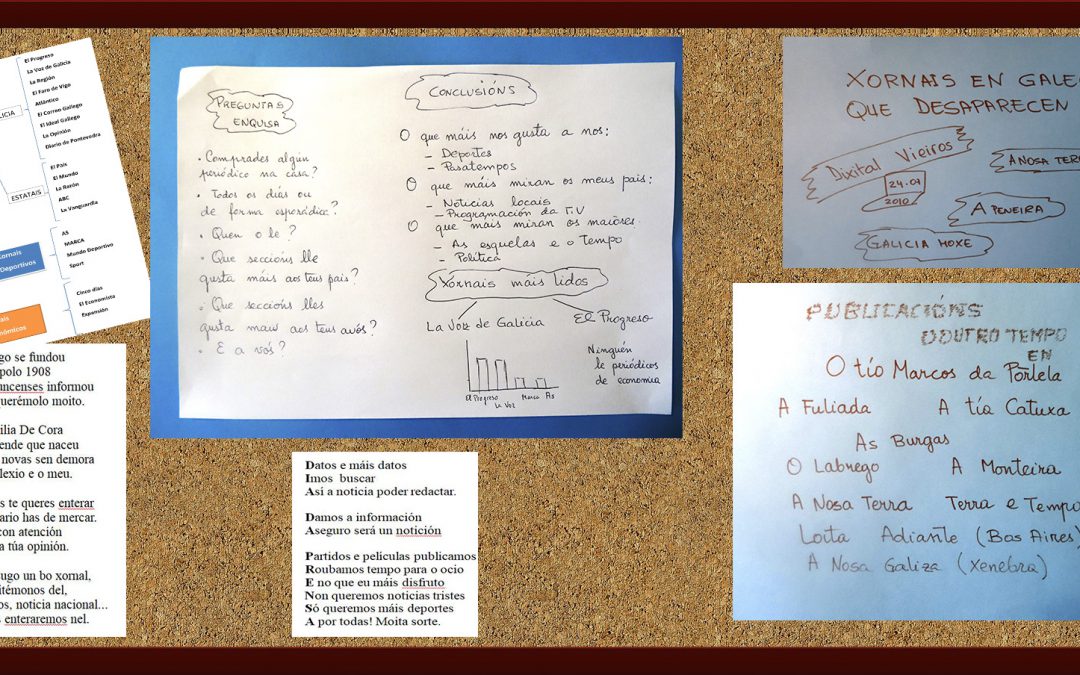 El Progreso
La Voz de Galicia
La Región
El Faro de Vigo
Atlántico
El Correo Gallego
El Ideal Gallego
La Opinión
Diario de Pontevedra
ESTATAIS
El País
El Mundo
La Razón
ABC
La Vanguardia
Deportivos
AS
MARCA
Mundo Deportivo
Sport
Cinco días
El Economista
Expansión
go se fundou
polo 1908
uncenses informou
querémolo moito.
ilia De Cora
ende que naceu
novas sen demora
lexio e o meu.
s te queres enterar
ario has de mercar.
con atención
a túa opinión.
ugo un bo xornal,
itémonos del,
os, noticia nacional...
s enteraremos nel.
PREGUNTAS
ENQUISA
• Comprades algún
periódico na casa?
• Todos os días ou
de forma esporádica?
• Quen o le?
• Que seccións lle
gusta máis aos teus pais?
• Que seccións lles
gusta maiw aos teus avós?
• E a vós?
CONCLUSIÓNS
O que máis nos gusta a nos:
- Deportes
- Pasatempos
O que máis miran os meus pais:
- Noticias locais
- Programación da T.V
O que máis miran os maiores.
- As esquelas e o Tempo
- Política
Xornais máis lidos
La Voz de Galicia El Progreso
El Progreso La Voz Marca As
Ninguén
le periódicos
de economia
Datos e máis datos
Imos buscar
Así a noticia poder redactar.
Damos a información
Aseguro será un notición
Partidos e peliculas publicamos
Roubamos tempo para o ocio
E no que eu máis disfruto
Non queremos noticias tristes
Só queremos máis deportes
A por todas! Moita sorte.
XORNAIS EN GALE
QUE DESAPARECEN
Dixital Vieiros
2010
A NOSA TERR
A PENEIRA
GALICIA HOXE
PUBLICACIÓNS
DOUTRO TEMPO
EN
O tío Marcos da Portela
A Fuliada A tía Catuxa
As Burgas
O Labrego A Monteira
A Nosa Terra Terra e Tempo
Loita Adiante (Bos Aires)
A Nosa Galiza (Xenebra)